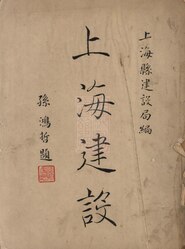 上海縣建設局編
上海建設
孫鴻哲題